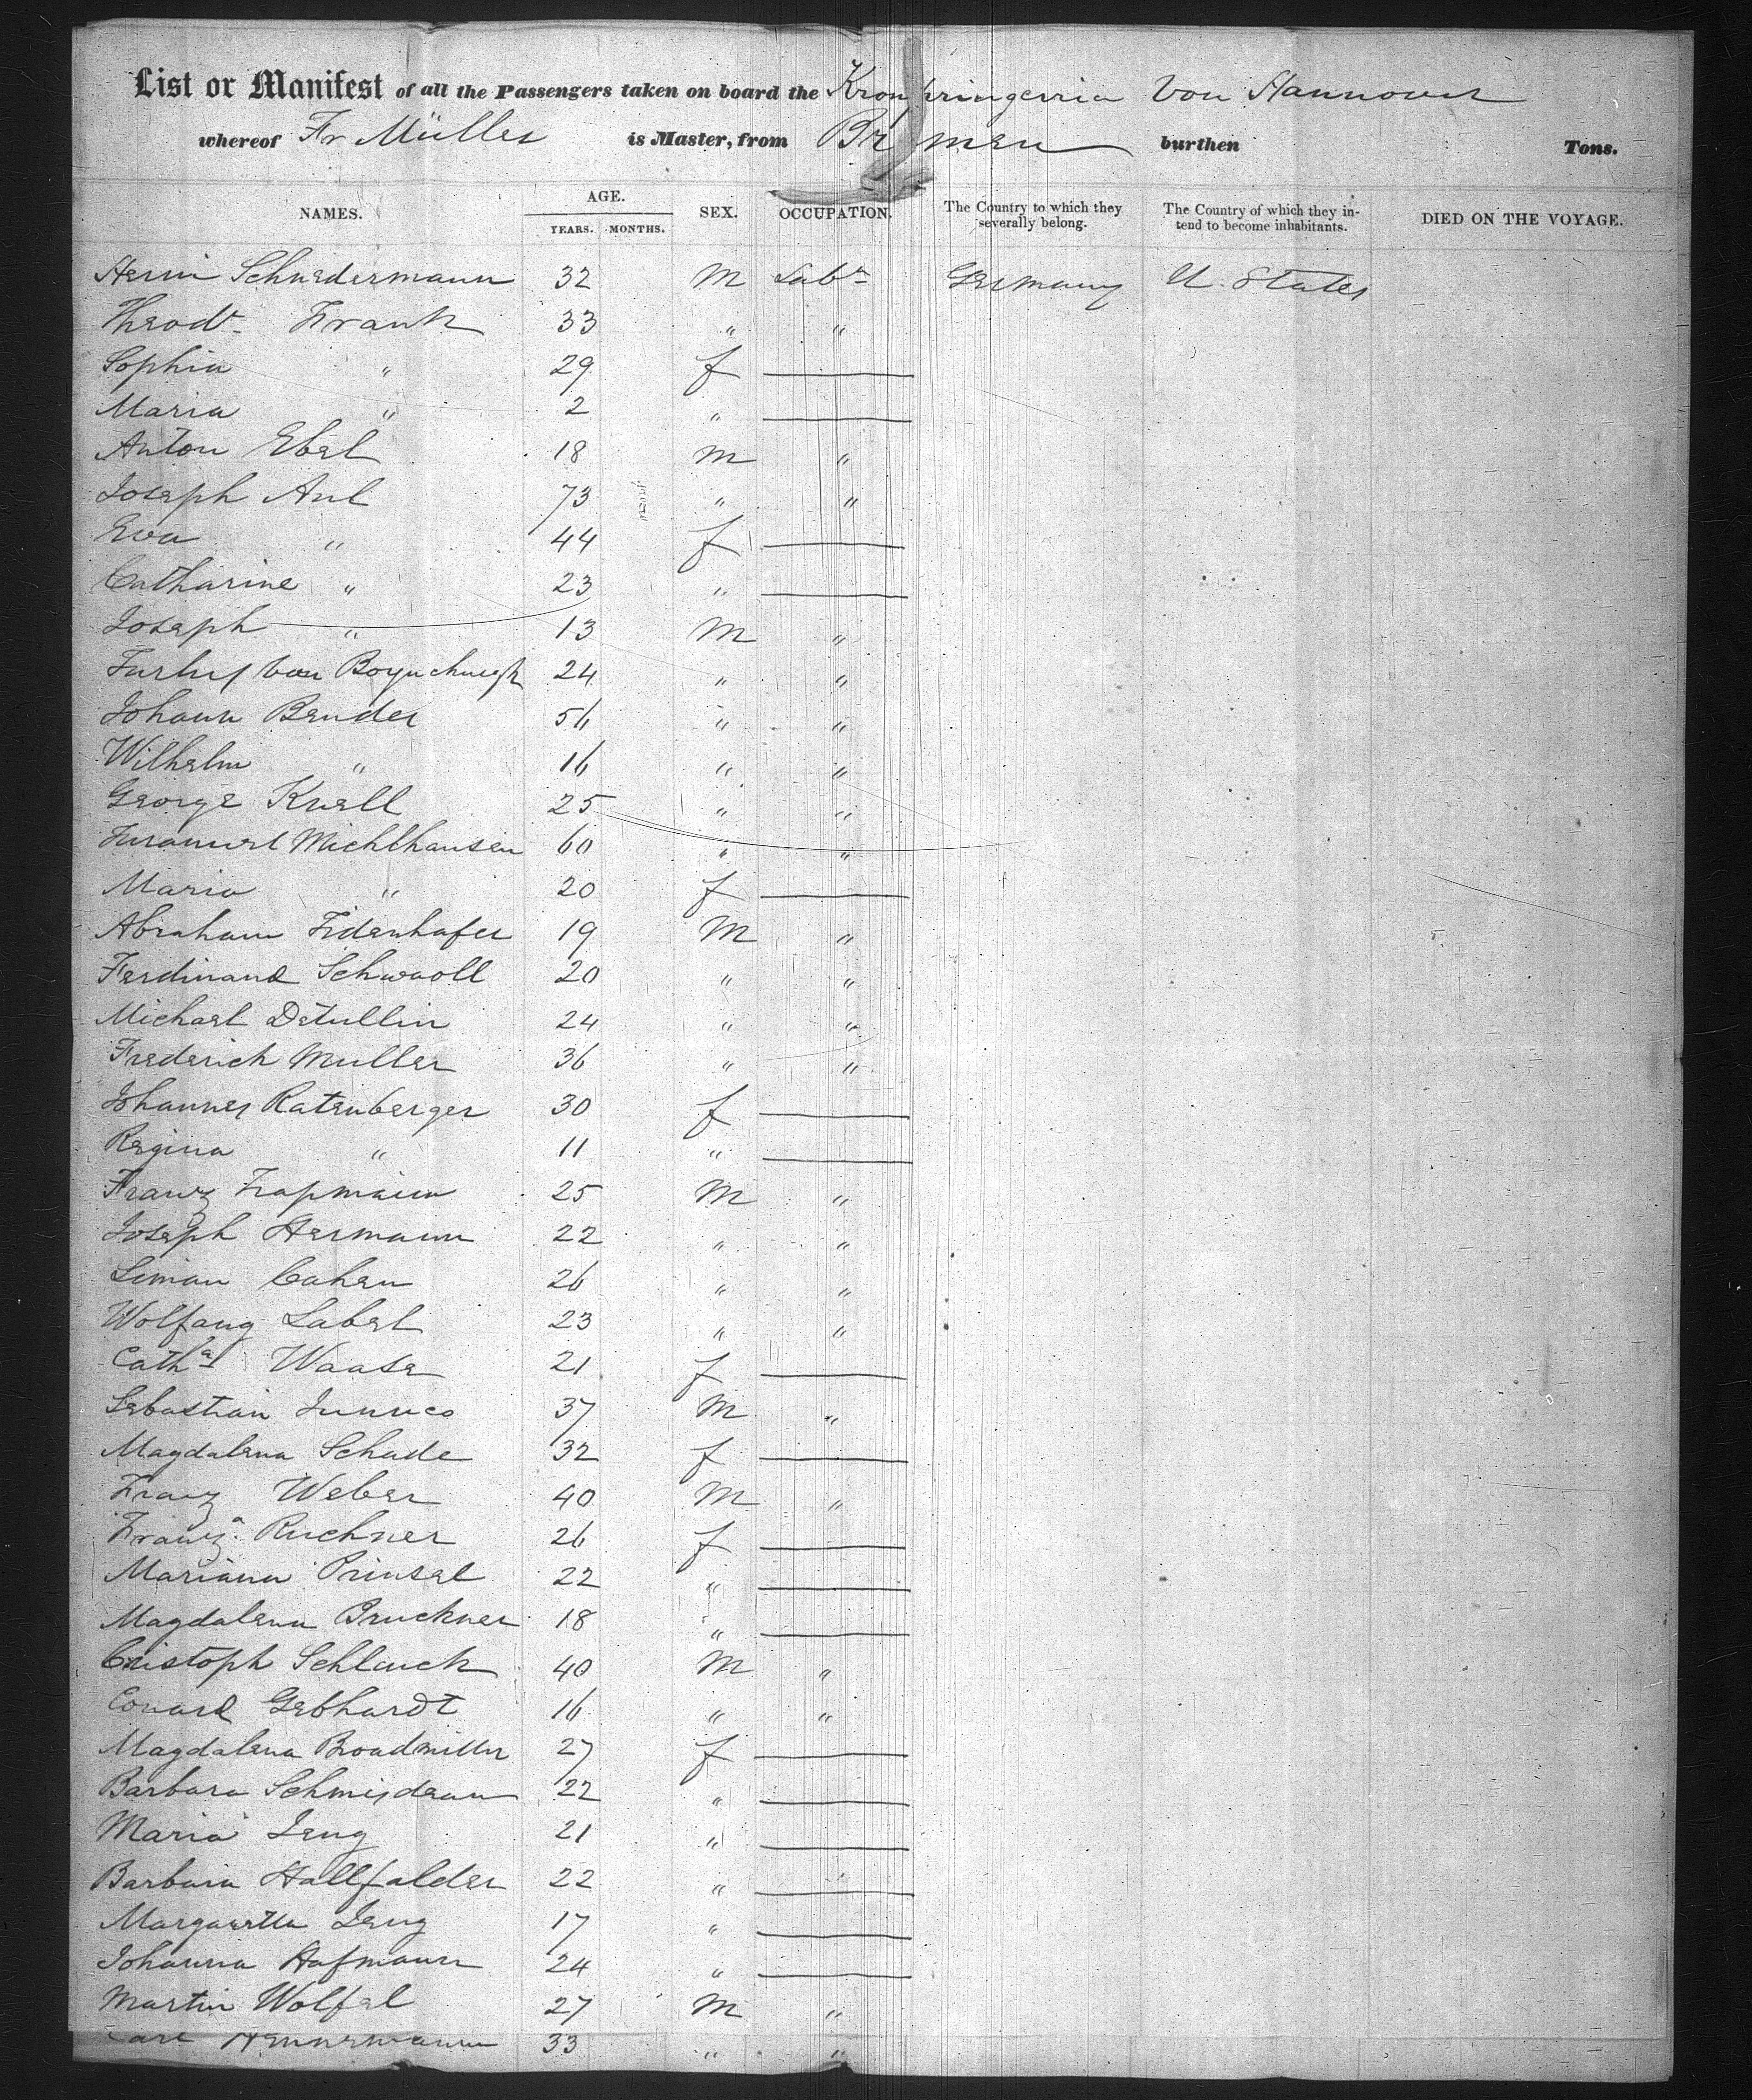 List or Manifest of all the Passengers taken on board the Kronprinzerria Von Hannover
whereof Fr Müller is Master, from Bremen burthen Tons.
NAMES. AGE. YEARS. MONTHS. SEX. OCCUPATION. The Country to which they severally belong. The Country of which they intend to become inhabitants. DIED ON THE VOYAGE.
Schnedermann 32 M Labr Germany U. States
Theodr Frank 33 " "
Sophia " 29 f
Maria " 2 "
Anton Ebel 18 M "
Joseph 73 " "
Eva " 44 f
Catharine " 23 "
Joseph " 13 M "
von 24 " "
Johann Bender 56 " "
Wilhelm " 16 " "
George Knell 25 " "
Michlhausen 60 " "
Maria " 20 f
Abraham Fidenhafer 19 M "
Ferdinand Schwaoll 20 " "
Michael Detullin 24 " "
Frederich Muller 36 " "
Johannes Ratenberger 30 f
Regina " 11 "
Franz 25 M "
Joseph Hermann 22 " "
Simon Cahen 26 " "
Wolfang Label 23 " "
Catha Waase 21 f
Sebastian 37 M "
Magdalena Schade 32 f
Franz Weber 40 M "
Franza Ruchner 26 f
Mariana Prinsel 22 "
Magdalena Bruckner 18 "
Cristoph Schlauch 40 M "
Edward Gebhardt 16 " "
Magdalena Broadmiller 27 f
Barbara 22 "
Maria Leng 21 "
Barbara Hallfalder 22 "
Margaretta Leng 17 "
Johanna Hofmann 24 "
Martin Wolfel 27 M "
Carl Hennemann 33 " "